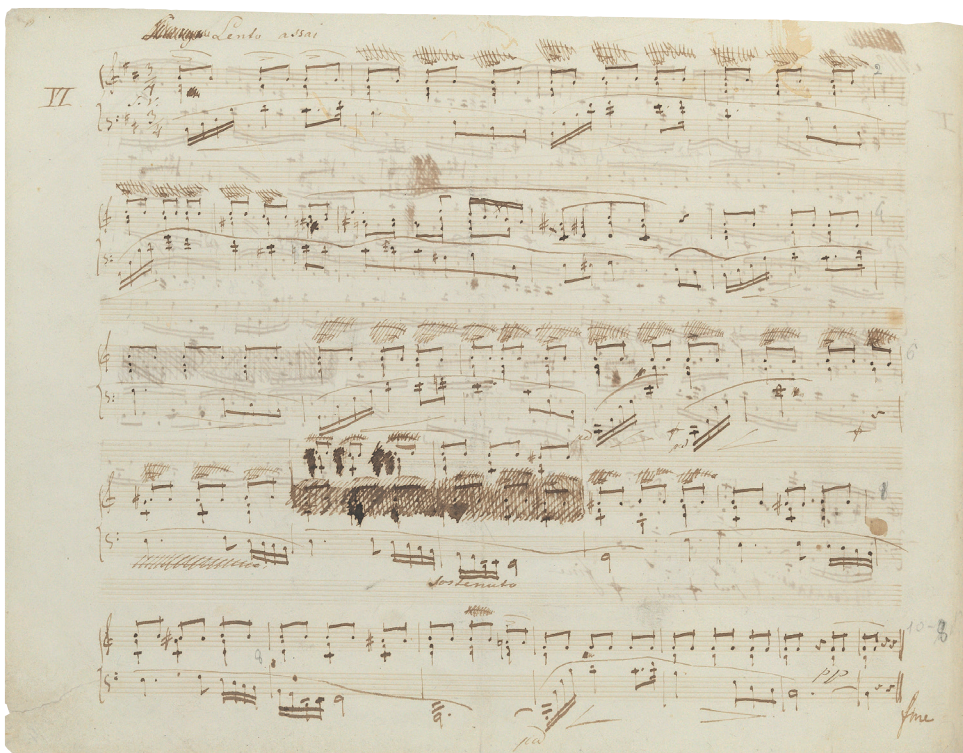 Lento assai
VI
2
sostenuto
10-8
pp
ped
fine